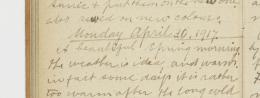 Annie & put them on the new one
also sewed on new colour.
Monday April 30, 1917.
A beautiful Spring morning
the weather is ideal and warm
in fact some days it is rather
too warm after the long cold